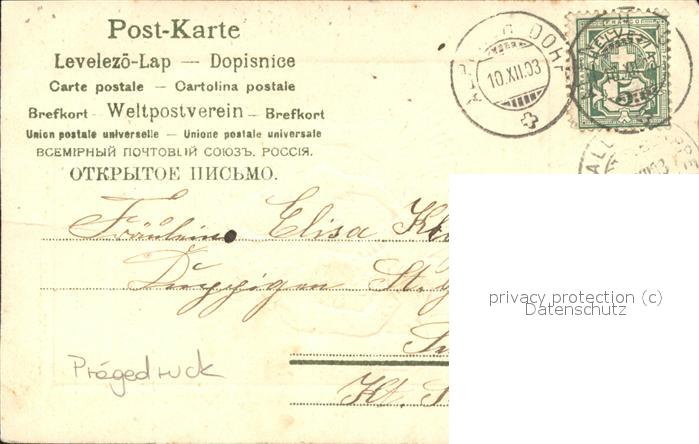 Post-Karte
Levelező-Lap — Dopisnice
Carte postale — Cartolina postale
Brefkort — Weltpostverein — Brefkort
Union postale universelle — Unione postale universale
ВСЕМІРНЫЙ ПОЧТОВЫЙ СОЮЗЪ. РОССІЯ.
ОТКРЫТОЕ ПИСЬМО.
DORF
10.XII.03
HELVETIA
5
Fräulein Elisa
St.
Kt.
Prägedruck
privacy protection (c)
Datenschutz